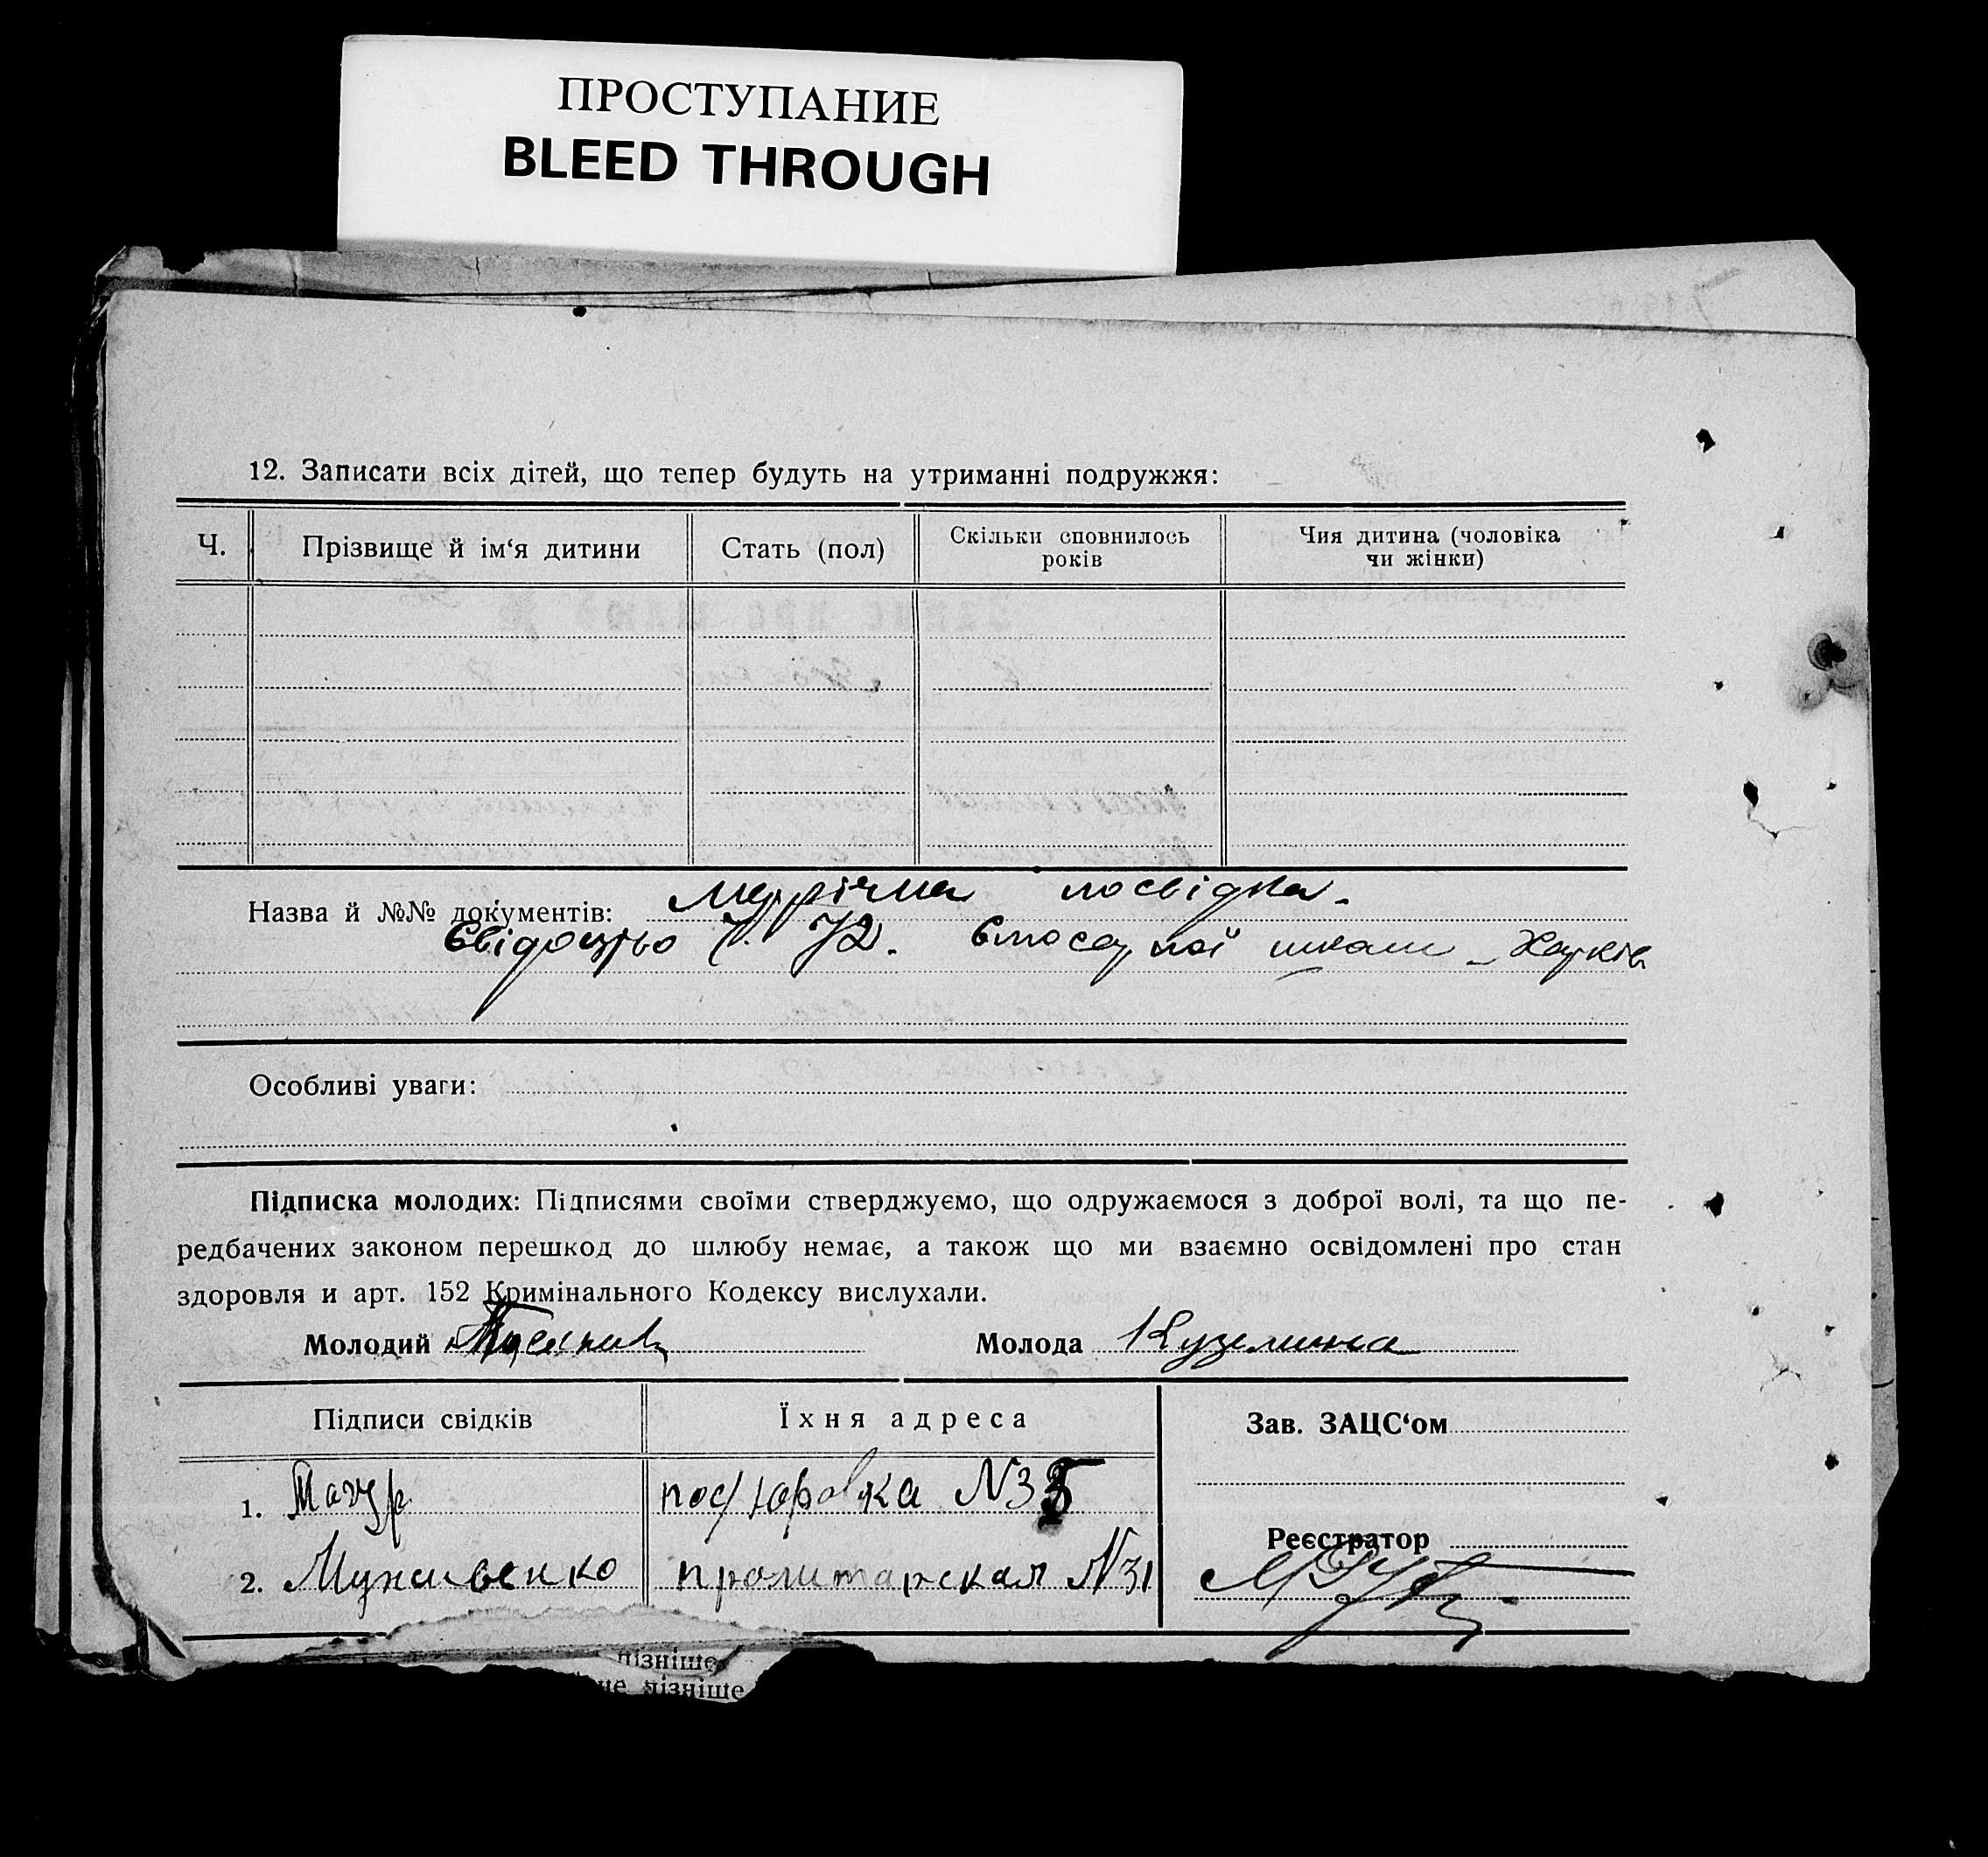 ПРОСТУПАНИЕ
BLEED THROUGH
12. Записати всіх дітей, що тепер будуть на утриманні подружжя:
Ч. Прізвище й ім‘я дитини Стать (пол) Скільки сповнилось років Чия дитина (чоловіка чи жінки)
Назва й №№ документів: посвідка.
Ч. 72. школи – Харків
Особливі уваги:
Підписка молодих: Підписями своїми стверджуємо, що одружаємося з доброї волі, та що пе-
редбачених законом перешкод до шлюбу немає, а також що ми взаємно освідомлені про стан
здоровля и арт. 152 Кримінального Кодексу вислухали.
Молодий Молода Кузьмина
Підписи свідків Їхня адреса Зав. ЗАЦС‘ом
1. Мазур N 35
Реєстратор
2. пролитарская N 31
пізніше
не пізніше